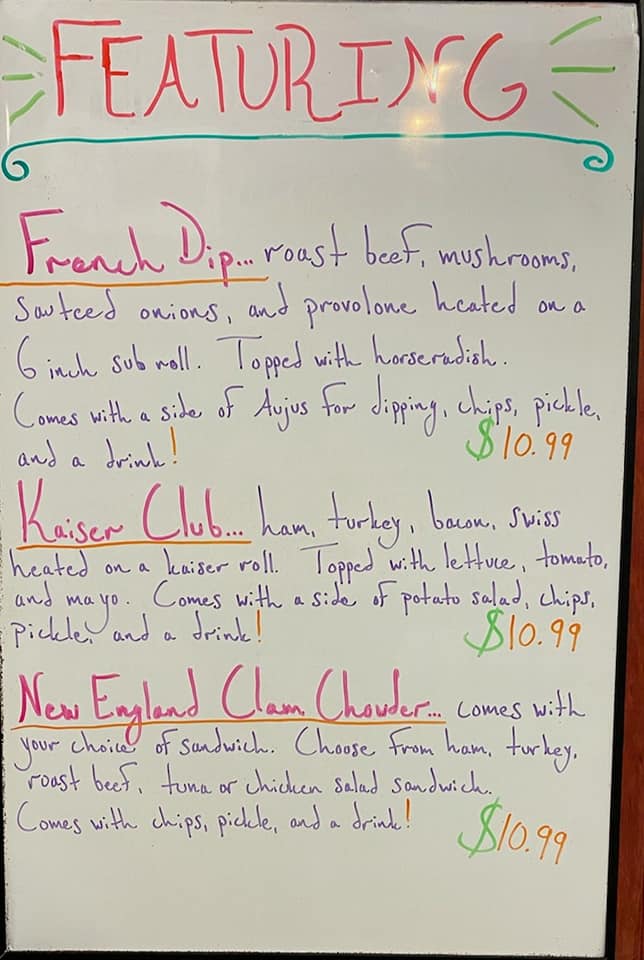 FEATURING
French Dip... roast beef, mushrooms,
Sauteed onions, and provolone heated on a
6 inch sub roll. Topped with horseradish.
Comes with a side of Aujus for dipping, chips, pickle,
and a drink! $10.99
Kaiser Club... ham, turkey, bacon, Swiss
heated on a kaiser roll. Topped with lettuce, tomato,
and mayo. Comes with a side of potato salad, chips,
pickle, and a drink! $10.99
New England Clam Chowder... comes with
your choice of sandwich. Choose from ham, turkey,
roast beef, tuna or chicken salad sandwich.
Comes with chips, pickle, and a drink! $10.99